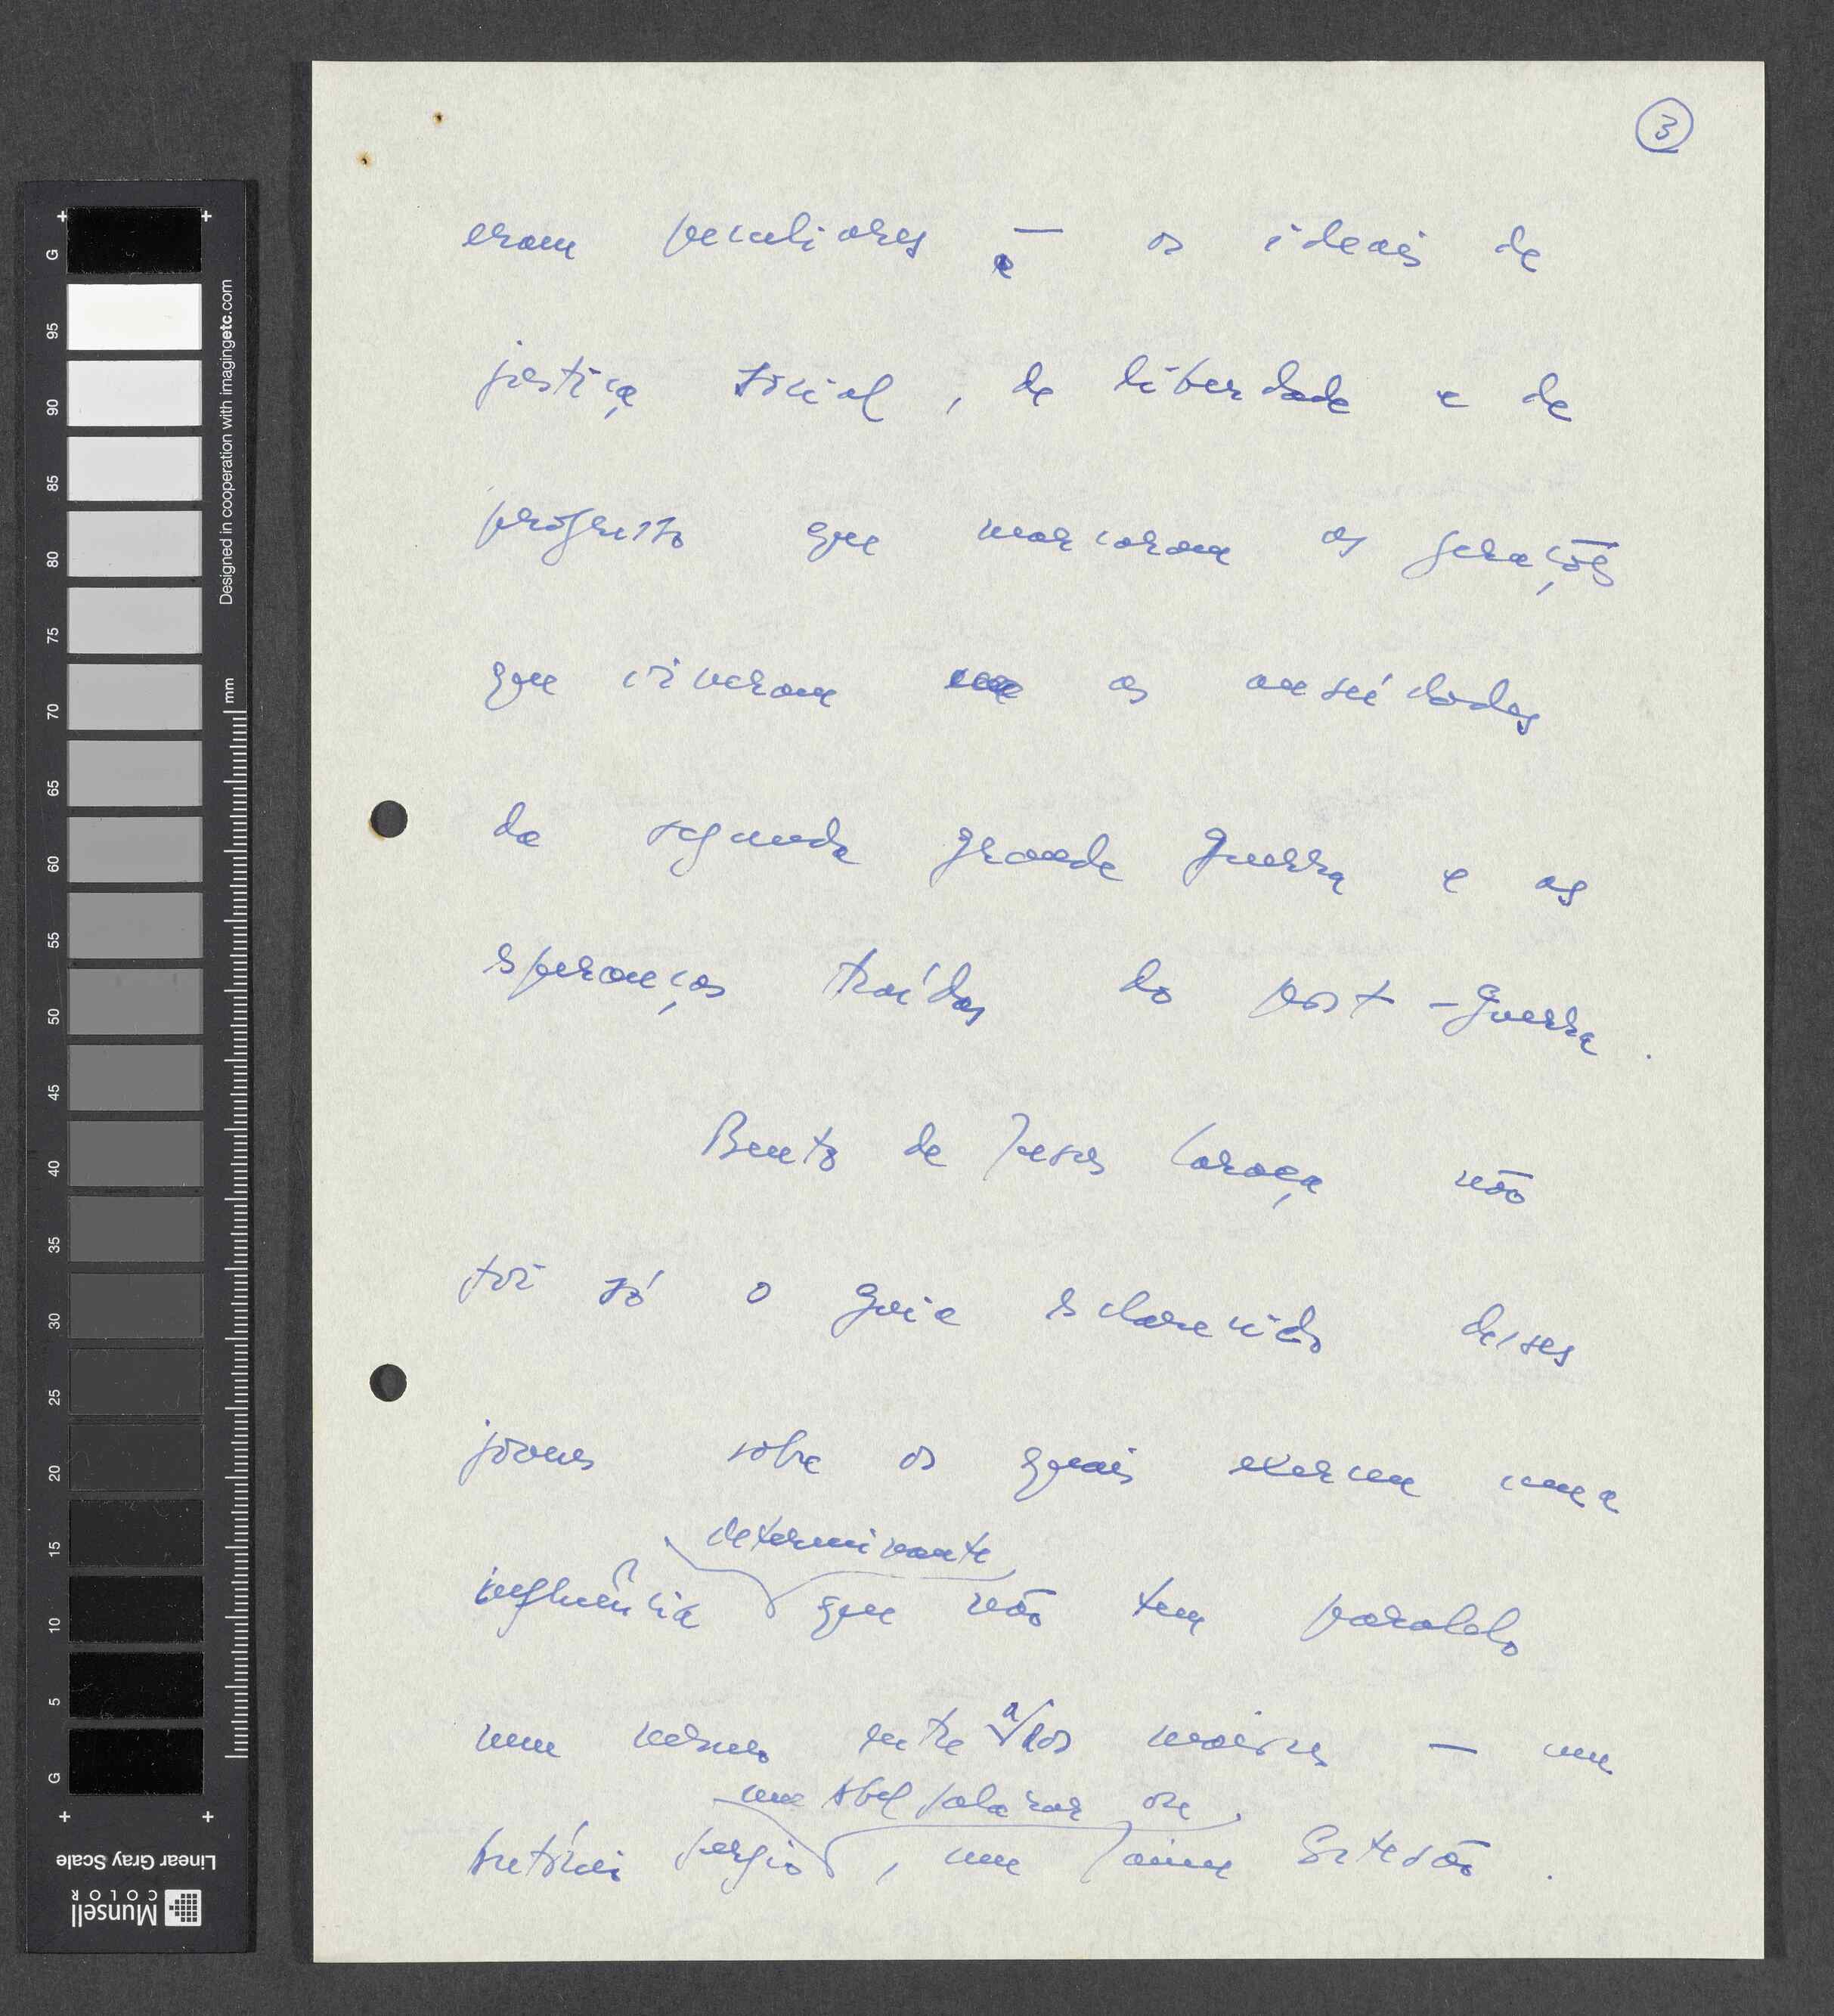 3
eram peculiares — os ideais de
e
justiça social, de liberdade e de
progresso que marcaram as gerações
que viveram as ansiedades
da segunda grande guerra e as
esperanças traídas do post-guerra.
Bento de Jesus Caraça não
foi só o guia esclarecido desses
jovens sobre os quais exerceu uma
determinante
influência que não tem paralelo
nem mesmo entre a/los maiores — um
um Abel Salazar ou
António Sérgio, um Jaime Cortesão.
G 95 90 85 80 75 70 65 60 55 50 45 40 35 30 25 20 15 10 5 G
Designed in cooperation with imagingetc.com
mm
Linear Gray Scale
Munsell
COLOR